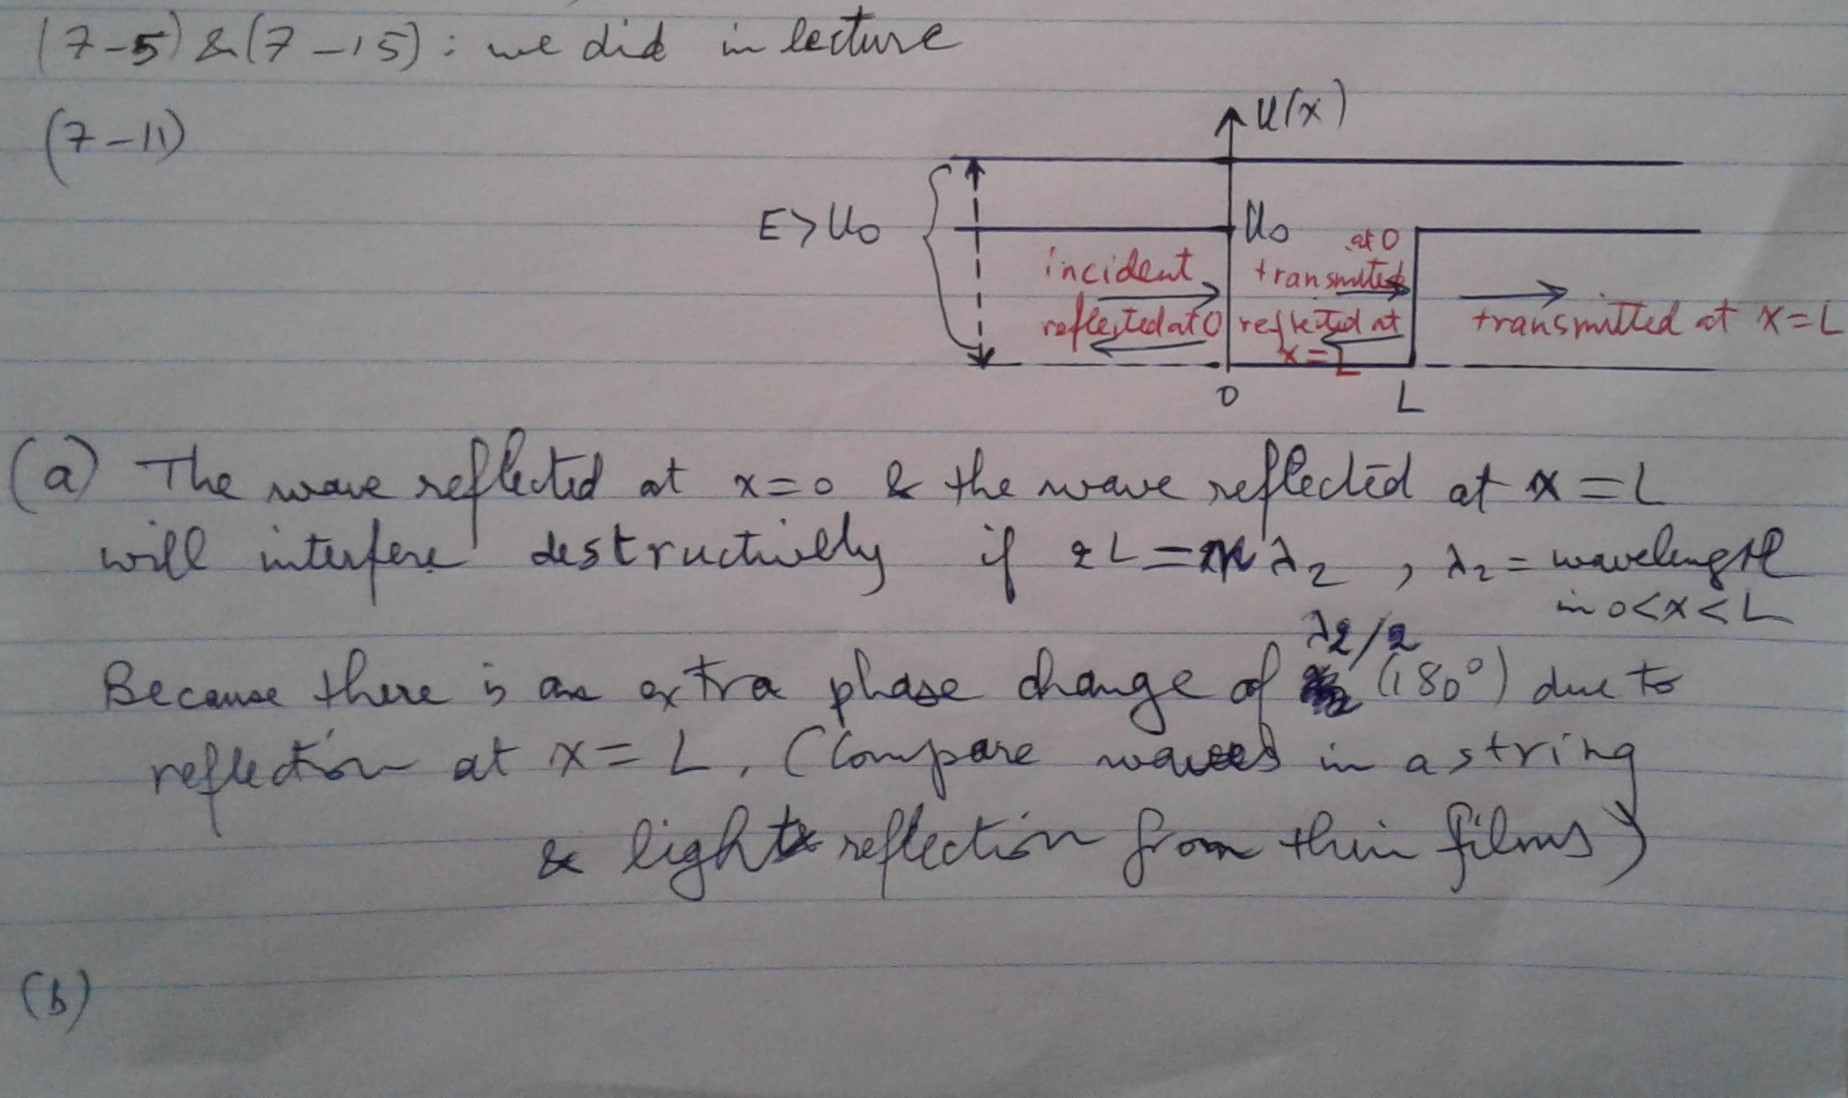 (7-5) & (7-15) : we did in lecture
(7-11)
U(x)
E>U0
U0
incident
reflected at 0
at 0
transmitted
reflected at
x=L
transmitted at x=L
0
L
(a) The wave reflected at x=0 & the wave reflected at x=L
will interfere destructively if 2L=nλ2 , λ2 = wavelength
in 0<x<L
λ2/2
Because there is an extra phase change of (180°) due to
reflection at x=L. (Compare waves in a string
& light reflection from thin films)
(b)